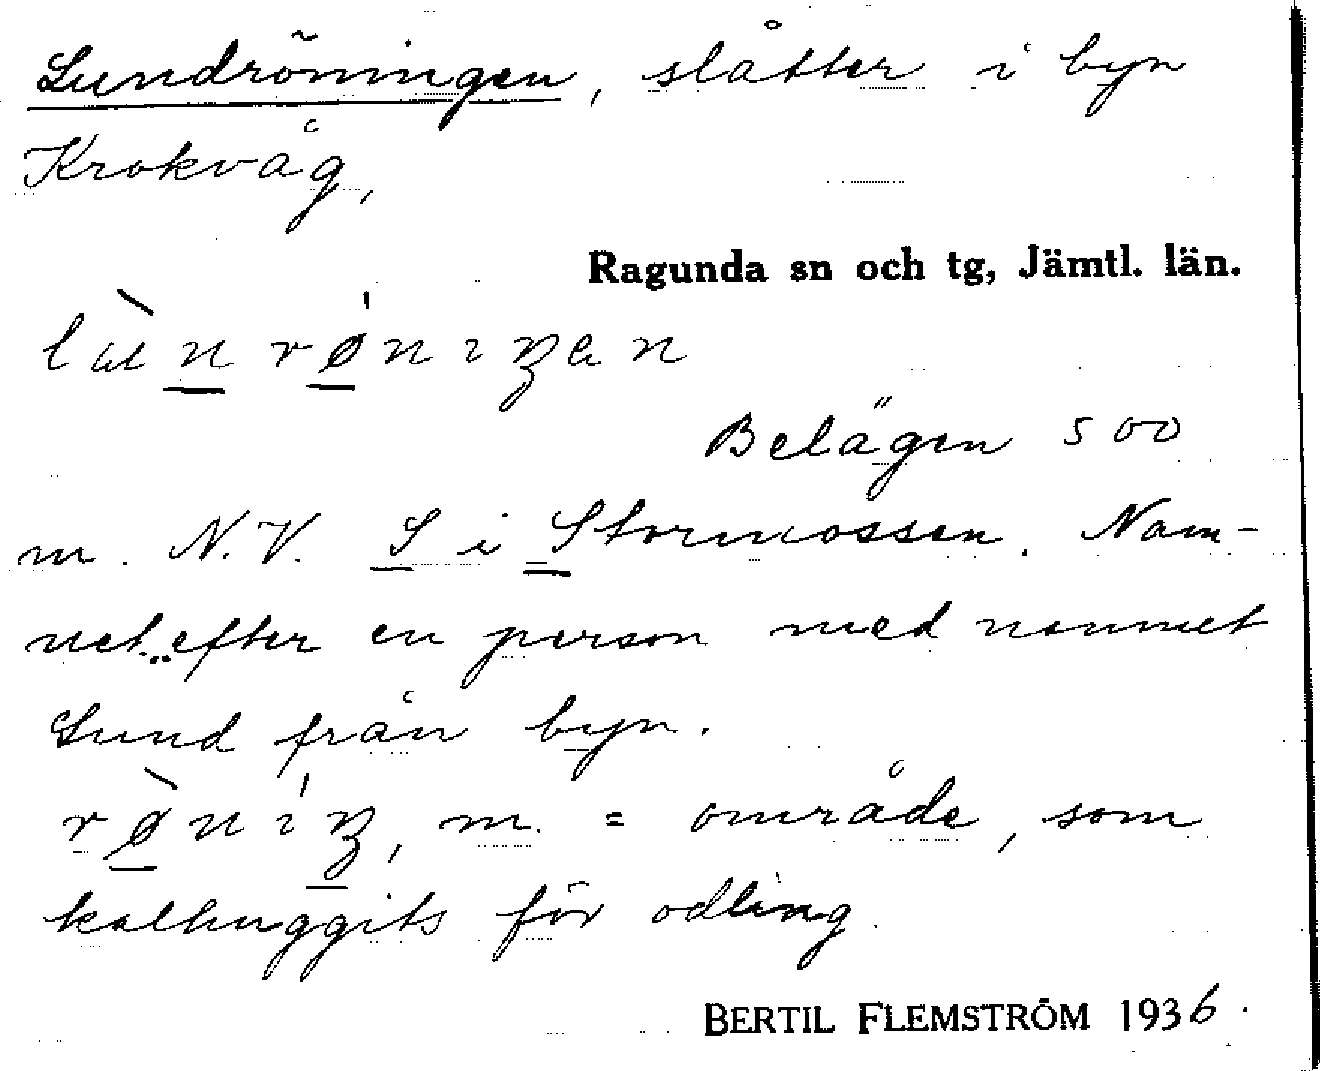 Lundröningen, slåtter i byn
Krokvåg,
Ragunda sn och tg, Jämtl. län.
Belägen 500
m. N.V. S i Stormossen. Nam-
net efter en person med namnet
Lund från byn.
m. = område, som
kalhuggits för odling.
BERTIL FLEMSTRÖM 1936.